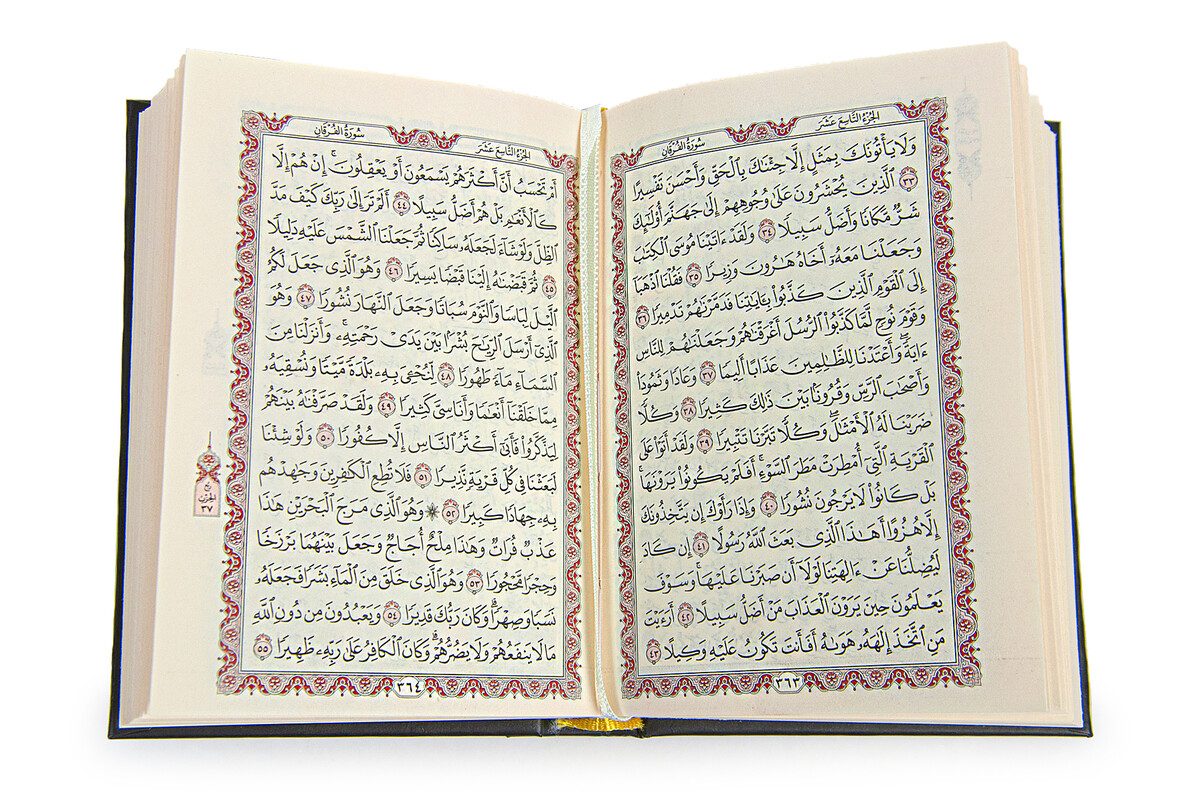 الجُزْءُ التَّاسِعَ عَشَرَ سُورَةُ الفُرْقَانِ
وَلَا يَأْتُونَكَ بِمَثَلٍ إِلَّا جِئْنَٰكَ بِالْحَقِّ وَأَحْسَنَ تَفْسِيرًا
٣٣ الَّذِينَ يُحْشَرُونَ عَلَىٰ وُجُوهِهِمْ إِلَىٰ جَهَنَّمَ أُوْلَٰٓئِكَ
شَرٌّ مَّكَانًا وَأَضَلُّ سَبِيلًا ٣٤ وَلَقَدْ ءَاتَيْنَا مُوسَى الْكِتَٰبَ
وَجَعَلْنَا مَعَهُۥٓ أَخَاهُ هَٰرُونَ وَزِيرًا ٣٥ فَقُلْنَا اذْهَبَآ
إِلَى الْقَوْمِ الَّذِينَ كَذَّبُوا۟ بِـَٔايَٰتِنَا فَدَمَّرْنَٰهُمْ تَدْمِيرًا ٣٦
وَقَوْمَ نُوحٍ لَّمَّا كَذَّبُوا۟ الرُّسُلَ أَغْرَقْنَٰهُمْ وَجَعَلْنَٰهُمْ لِلنَّاسِ
ءَايَةً وَأَعْتَدْنَا لِلظَّٰلِمِينَ عَذَابًا أَلِيمًا ٣٧ وَعَادًا وَثَمُودًا
وَأَصْحَٰبَ الرَّسِّ وَقُرُونًا بَيْنَ ذَٰلِكَ كَثِيرًا ٣٨ وَكُلًّا
ضَرَبْنَا لَهُ الْأَمْثَٰلَ وَكُلًّا تَبَّرْنَا تَتْبِيرًا ٣٩ وَلَقَدْ أَتَوْا۟ عَلَى
الْقَرْيَةِ الَّتِىٓ أُمْطِرَتْ مَطَرَ السَّوْءِ أَفَلَمْ يَكُونُوا۟ يَرَوْنَهَا
بَلْ كَانُوا۟ لَا يَرْجُونَ نُشُورًا ٤٠ وَإِذَا رَأَوْكَ إِن يَتَّخِذُونَكَ
إِلَّا هُزُؤًا أَهَٰذَا الَّذِى بَعَثَ اللَّهُ رَسُولًا ٤١ إِن كَادَ
لَيُضِلُّنَا عَنْ ءَالِهَتِنَا لَوْلَآ أَن صَبَرْنَا عَلَيْهَا وَسَوْفَ
يَعْلَمُونَ حِينَ يَرَوْنَ الْعَذَابَ مَنْ أَضَلُّ سَبِيلًا ٤٢ أَرَءَيْتَ
مَنِ اتَّخَذَ إِلَٰهَهُۥ هَوَىٰهُ أَفَأَنتَ تَكُونُ عَلَيْهِ وَكِيلًا ٤٣
٣٦٣
الجُزْءُ التَّاسِعَ عَشَرَ سُورَةُ الفُرْقَانِ
أَمْ تَحْسَبُ أَنَّ أَكْثَرَهُمْ يَسْمَعُونَ أَوْ يَعْقِلُونَ إِنْ هُمْ إِلَّا
كَالْأَنْعَٰمِ بَلْ هُمْ أَضَلُّ سَبِيلًا ٤٤ أَلَمْ تَرَ إِلَىٰ رَبِّكَ كَيْفَ مَدَّ
الظِّلَّ وَلَوْ شَآءَ لَجَعَلَهُۥ سَاكِنًا ثُمَّ جَعَلْنَا الشَّمْسَ عَلَيْهِ دَلِيلًا
٤٥ ثُمَّ قَبَضْنَٰهُ إِلَيْنَا قَبْضًا يَسِيرًا ٤٦ وَهُوَ الَّذِى جَعَلَ لَكُمُ
الَّيْلَ لِبَاسًا وَالنَّوْمَ سُبَاتًا وَجَعَلَ النَّهَارَ نُشُورًا ٤٧ وَهُوَ
الَّذِىٓ أَرْسَلَ الرِّيَٰحَ نُشُرًا بَيْنَ يَدَىْ رَحْمَتِهِۦ وَأَنزَلْنَا مِنَ
السَّمَآءِ مَآءً طَهُورًا ٤٨ لِّنُحْۦِىَ بِهِۦ بَلْدَةً مَّيْتًا وَنُسْقِيَهُۥ
مِمَّا خَلَقْنَآ أَنْعَٰمًا وَأَنَاسِىَّ كَثِيرًا ٤٩ وَلَقَدْ صَرَّفْنَٰهُ بَيْنَهُمْ
لِيَذَّكَّرُوا۟ فَأَبَىٰٓ أَكْثَرُ النَّاسِ إِلَّا كُفُورًا ٥٠ وَلَوْ شِئْنَا
لَبَعَثْنَا فِى كُلِّ قَرْيَةٍ نَّذِيرًا ٥١ فَلَا تُطِعِ الْكَٰفِرِينَ وَجَٰهِدْهُم
بِهِۦ جِهَادًا كَبِيرًا ٥٢ ۞ وَهُوَ الَّذِى مَرَجَ الْبَحْرَيْنِ هَٰذَا
عَذْبٌ فُرَاتٌ وَهَٰذَا مِلْحٌ أُجَاجٌ وَجَعَلَ بَيْنَهُمَا بَرْزَخًا
وَحِجْرًا مَّحْجُورًا ٥٣ وَهُوَ الَّذِى خَلَقَ مِنَ الْمَآءِ بَشَرًا فَجَعَلَهُۥ
نَسَبًا وَصِهْرًا وَكَانَ رَبُّكَ قَدِيرًا ٥٤ وَيَعْبُدُونَ مِن دُونِ اللَّهِ
مَا لَا يَنفَعُهُمْ وَلَا يَضُرُّهُمْ وَكَانَ الْكَافِرُ عَلَىٰ رَبِّهِۦ ظَهِيرًا ٥٥
٣٦٤
الحزب
٣٧